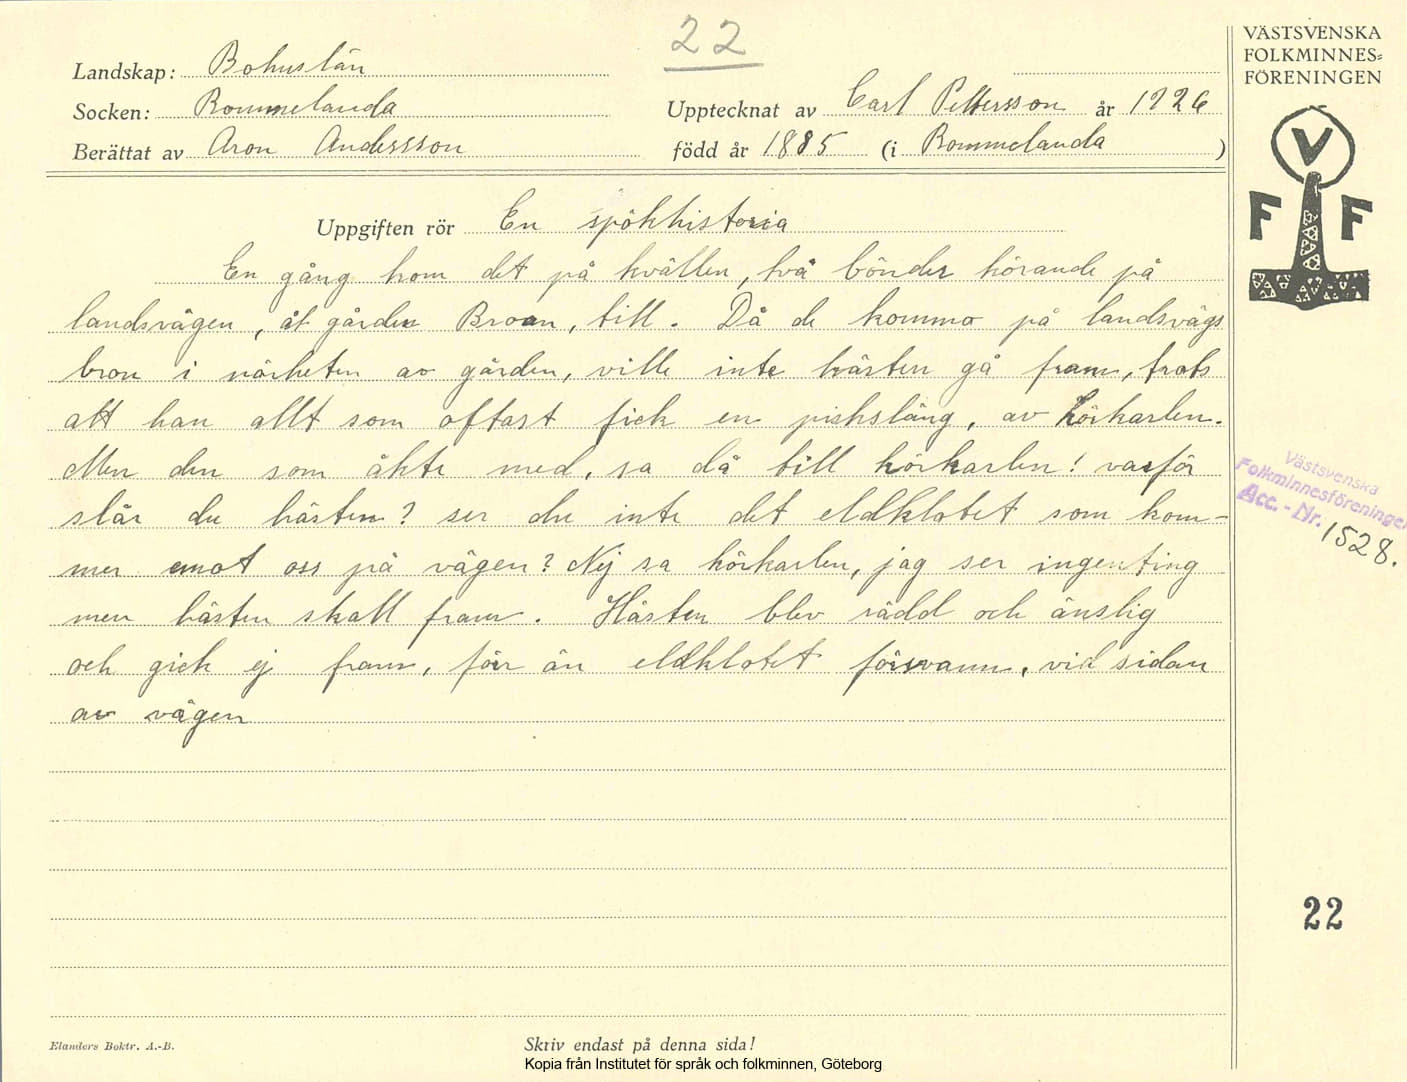 22
VÄSTSVENSKA
FOLKMINNES=
FÖRENINGEN
Landskap: Bohuslän
Socken: Rommelanda
Upptecknat av Carl Pettersson år 1926
Berättat av Aron Andersson
född år 1885 (i Rommelanda)
V
F F
Uppgiften rör En spökhistoria
En gång kom det på kvällen, två bönder körande på
landsvägen, åt gården Broan, till. Då de kommo på landsvägs
bron i närheten av gården, ville inte hästen gå fram, trots
att han allt som oftast fick en pisksläng, av körkarlen.
Men den som åkte med, sa då till körkarlen! varför
slår du hästen? ser du inte det eldklotet som kom-
mer emot oss på vägen? Nej sa körkarlen, jag ser ingenting
men hästen skall fram. Hästen blev rädd och änslig
och gick ej fram, förr än eldklotet försvann, vid sidan
av vägen
Västsvenska
Folkminnesföreningen
Acc. - Nr. 1528.
22
Elanders Boktr. A.-B.
Skriv endast på denna sida!
Kopia från Institutet för språk och folkminnen, Göteborg